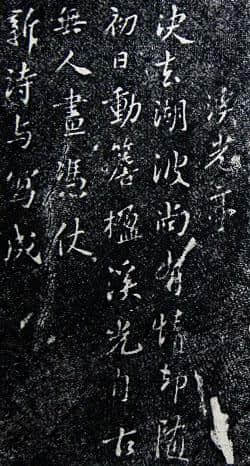 溪光亭
決去湖波尚有情却随
初日動簷楹溪光自古
無人畫憑仗
新詩与寫成